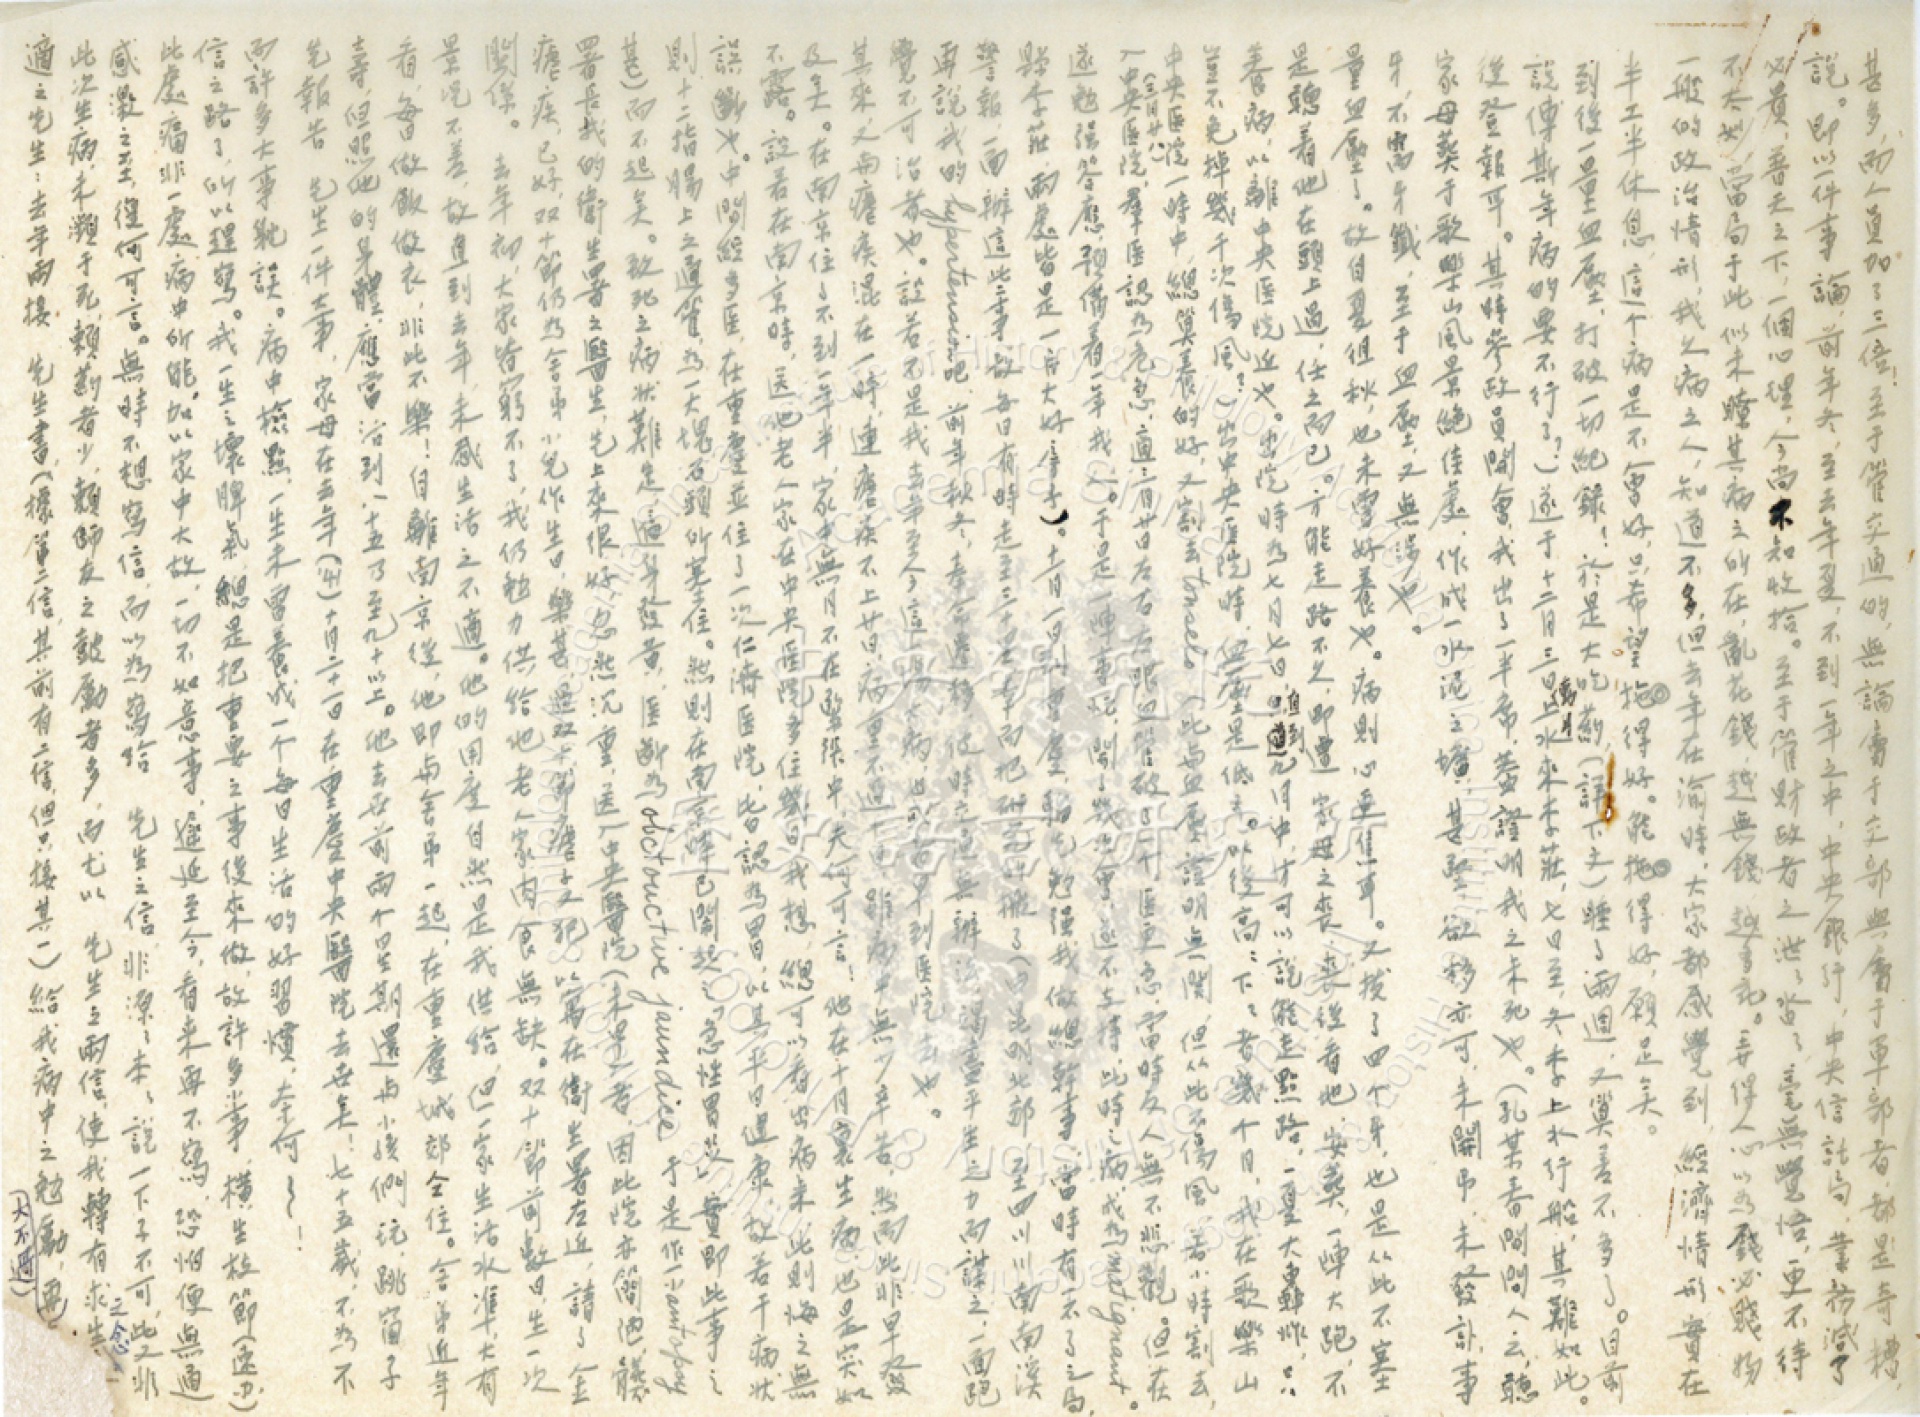 適之先生：去年兩接　先生書，（據第二信，其前有二信，但只接其一）給我病中之勉勵，
此次生病，未瀕于死，賴藥者少，賴師友之鼓勵者多，而尤以　先生之兩信，使我轉有求生之念，
感激之至，從何可言。無時不想寫信，而以為寫給　先生之信，非源源本本說一下子不可，此又非
此處痛非一處病中所能。加以家中大故，一切不如意事，遲延至今，看來再不寫，恐怕便無通
信之路了，所以趕寫。我一生之壞脾氣，總是把重要之事後來做，故許多小事，橫生枝節
而許多大事耽誤。病中檢點，一生未曾養成一个每日生活的好習慣，奈何～！
先報告　先生一件大事，家母在去年（卅）十月二十一日在重慶中央醫院去世矣！七十五歲，不為不
壽，但照他的身體，應當活到八十五乃至九十以上。他去世前兩个星期還与小孩們玩，跳窗子
看，每日做飯做衣，非此不樂！自離南京後，他即与舍弟一起，在重慶城郊住。舍弟近年
景況不差，故直到去年，未感生活之不適。他的用度自然是我供給，但一家生活水準，大有
關係。去年初，大家皆窮不了，我仍勉力供給他老人家肉食無缺。双十節前數日，生一次
瘧疾，已好，双十節仍為舍弟小兒作生日，樂甚，過双十節瘧子又犯，以寓在衛生署左近，請了金
署長我的衛生署之醫生，先上來很好，忽然沉重，送入中央醫院（未早送者，因此院亦簡陋
甚）而不起矣。致死之病狀難定，遍身發黃，医斷為obstructive jaundice 于是作一小autopsy
則十二指腸上之通管，為一大塊石頭所塞住。然則在南京時已鬧起之「急性胃炎」實即此事之
誤斷也。中間經多医，在重慶並住了一次仁濟医院，皆認為胃，以其平日健康，故若干病狀
不露。設若在南京時，送他老人家在中央医院多住幾日，我想，總可以看出病來，此則悔之無
及矣。在南京住了不到一年半，家中無月不在醫院中，夫何可言！他在十月裏生病也是突如
其來，又与瘧疾混在一時，連瘧疾不上廿日，病重不過十日，雖病中無少辛苦，然而此非早發
覺不可治者也。設若不是我去年至今這一場大病，也可以早到医院去也。
再說我的hypertension吧，前年秋冬，奉命遷移，彼時交通無辦法，竭盡平生之力而謀之，一面跑
警報，一面辦這些事，故每日有時走至三十里，幸而把研究所搬了（由昆明北郊，至四川南溪
縣李莊，兩處皆是一片大好房子）。十二月一日到重慶，騮先勉强我做總幹事，當時有不了之局，
遂勉强答應，預備看一年我。于是一陣事忙，開了幾次會，遂不支持，此時之病，成為malignant。
（三月廿八）入中央医院，羣医認為危急，適三月廿日左右右眼血管破了一个，医更急，當時友人無不悲觀。但在
中央医院一時中，總算養的好，又割去tonsels（此与血壓證明無關，但从此不傷風，若小時割去，
豈不免掉幾千次傷風？）出中央医院時，血壓是低了。以後高高下下者幾个月，我在歌樂山
養病，以離中央医院近也。出院時為七月七日，直到九月中，才可以說能走點路，一夏大轟炸，只
是聽着他在頭上過，任之而已。方能走路不久，即遭家母之喪，喪後看地，安葬，一陣大跑，不
量血壓了。故自夏徂秋，也未曾好養也。病則心更焦。又拔了四个牙，也是从此不塞
牙，不需牙籤，至于血壓，又無涉也。
家母葬于歌樂山風景絕佳處，作成一水泥之壙，甚堅，欲移亦可，未開弔，未發訃，事
後登報耳。其時參政員開會，我出了一半席，蓋證明我之未死也。（孔某春間問人云，聽
說傅斯年病的要不行了？）遂于十二月三日上水來李莊，七日至，冬季上水行船，其難如此。
到後一量血壓，打破一切紀錄！於是大吃藥，（詳下文）睡了兩週，又算差不多了。目前
半工半休息，這个病是不會好，只希望拖得好。能拖得好，願足矣。
一般的政治情形，我久病之人，知道不多，但去年在渝時，大家都感覺到，經濟情形實在
不太妙，當局于此似未瞭其病之所在，亂花錢，越無錢，越亂。弄得人心以為錢必賤，物
必貴，普天之下，一個心理，今尚不知收拾。至于管財政者之泄泄沓沓，毫無覺悟，更不待
說。即以一件事論，前年冬，至去年夏，不到一年之中，中央銀行，中央信託局，業務減了
甚多，而人員加了三倍！至于管交通的，無論屬于交部與屬于軍部者，都是奇糟，